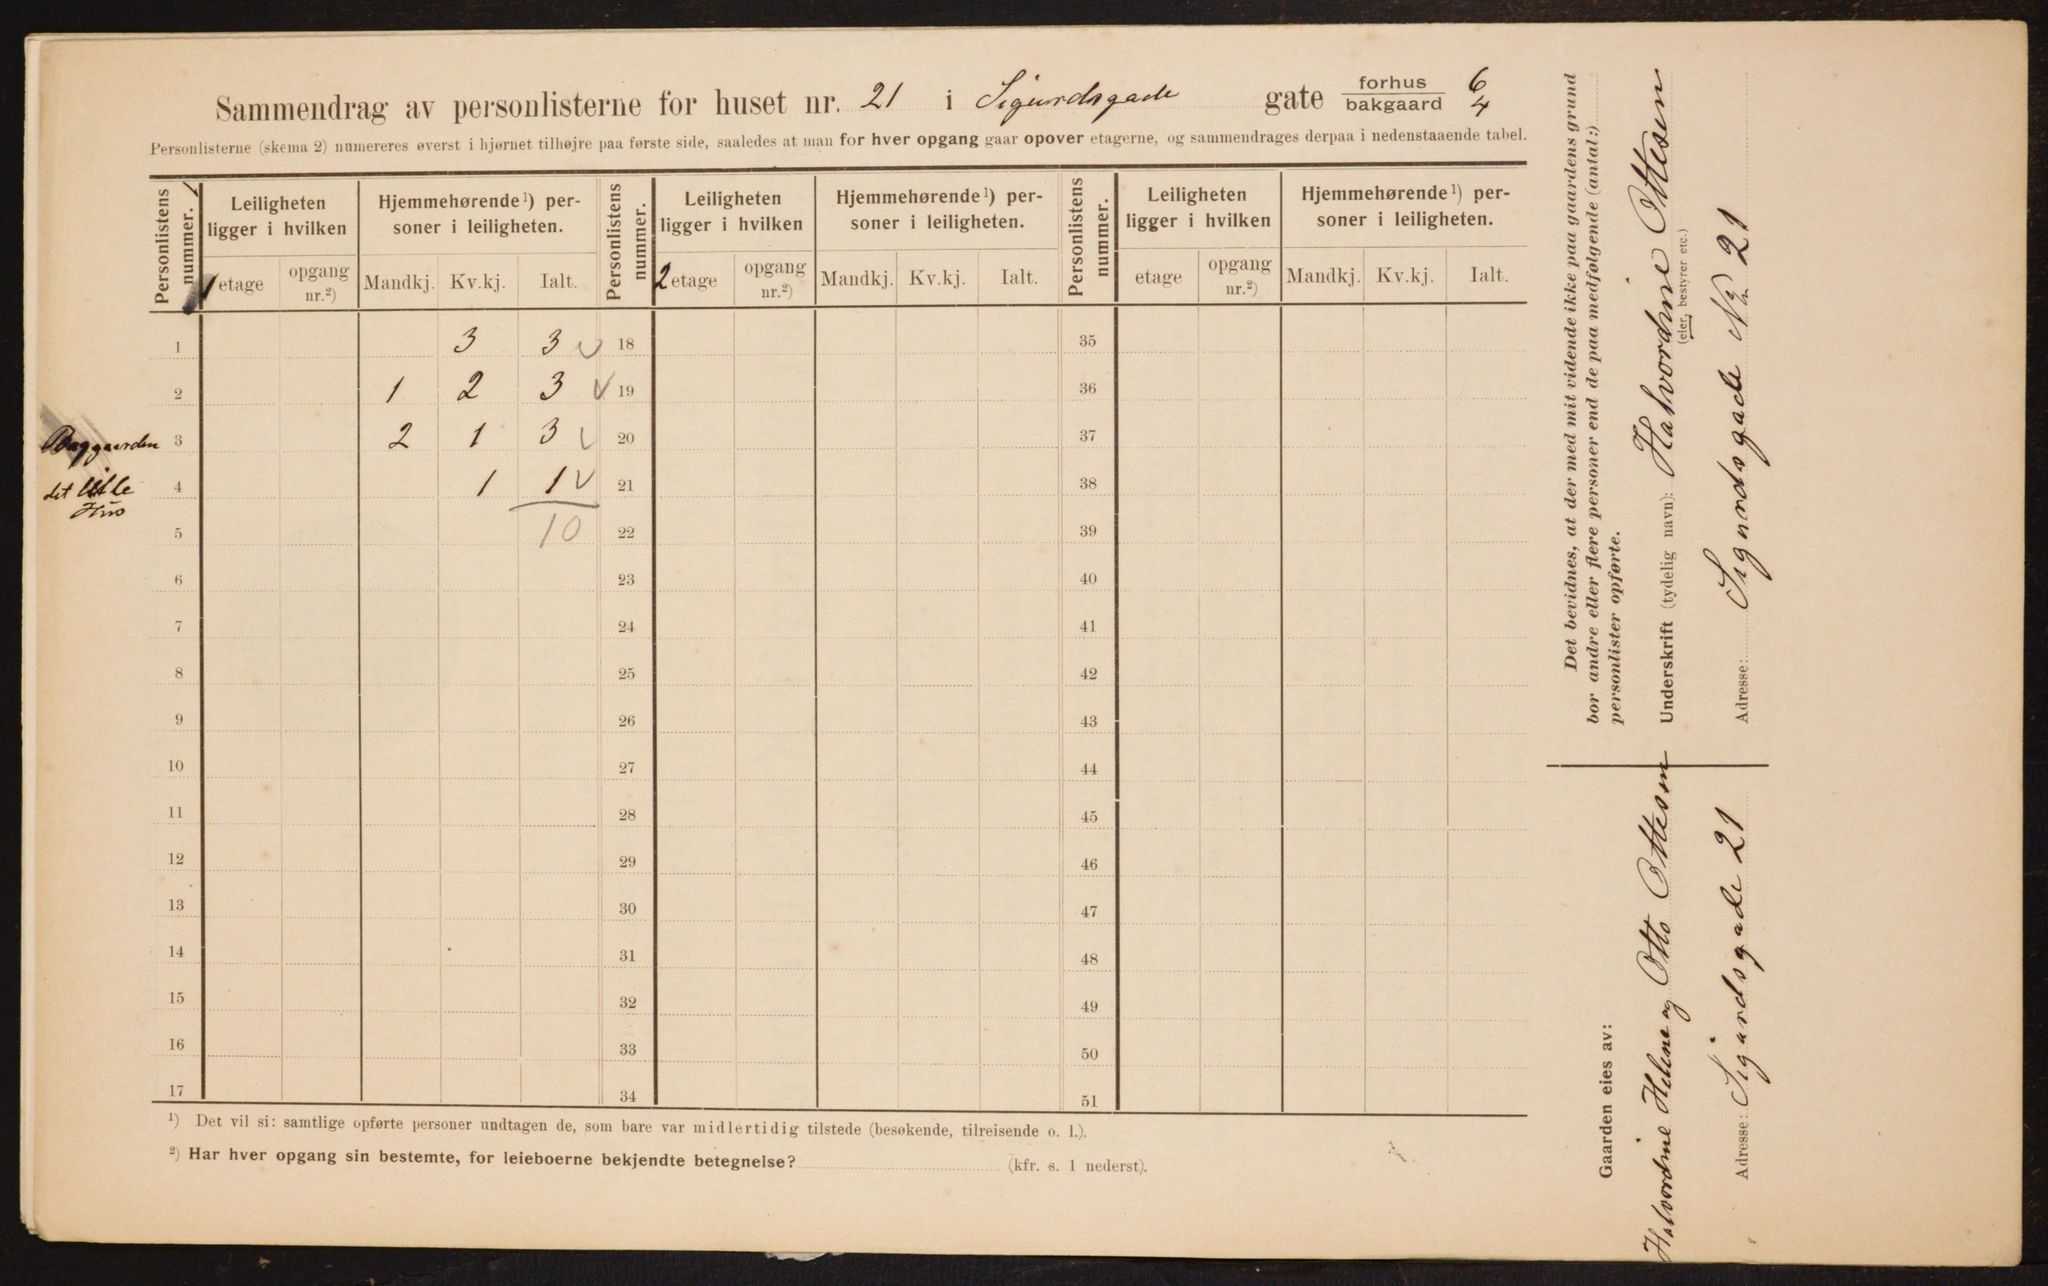 Sammendrag av personlisterne for huset nr. 21 i Sigurdsgade gate forhus 6
bakgaard 4
Personlisterne (skema 2) numereres øverst i hjørnet tilhøjre paa første side, saaledes at man for hver opgang gaar opover etagerne, og sammendrages derpaa i nedenstaaende tabel.
Personlistens nummer. Leiligheten ligger i hvilken Hjemmehørende ¹) personer i leiligheten. Personlistens nummer. Leiligheten ligger i hvilken Hjemmehørende ¹) personer i leiligheten. Personlistens nummer. Leiligheten ligger i hvilken Hjemmehørende ¹) personer i leiligheten.
1 etage opgang nr.²) Mandkj. Kv.kj. Ialt. 2 etage opgang nr.²) Mandkj. Kv.kj. Ialt. etage opgang nr.²) Mandkj. Kv.kj. Ialt.
1 3 3 ✓ 18 35
2 1 2 3 ✓ 19 36
Baggaarden 3 2 1 3 ✓ 20 37
det lille 4 1 1 ✓ 21 38
Hus
5 10 22 39
6 23 40
7 24 41
8 25 42
9 26 43
10 27 44
11 28 45
12 29 46
13 30 47
14 31 48
15 32 49
16 33 50
17 34 51
¹) Det vil si: samtlige opførte personer undtagen de, som bare var midlertidig tilstede (besøkende, tilreisende o. l.).
²) Har hver opgang sin bestemte, for leieboerne bekjendte betegnelse? (kfr. s. 1 nederst).
Det bevidnes, at der med mit vidende ikke paa gaardens grund
bor andre eller flere personer end de paa medfølgende (antal:)
personlister opførte.
Underskrift (tydelig navn): Halvordine Ottesen
(eier, bestyrer etc.)
Adresse: Sigurdsgade No 21
Gaarden eies av:
Halvordine Helene og Otto Ottesen
Adresse: Sigurdsgade 21